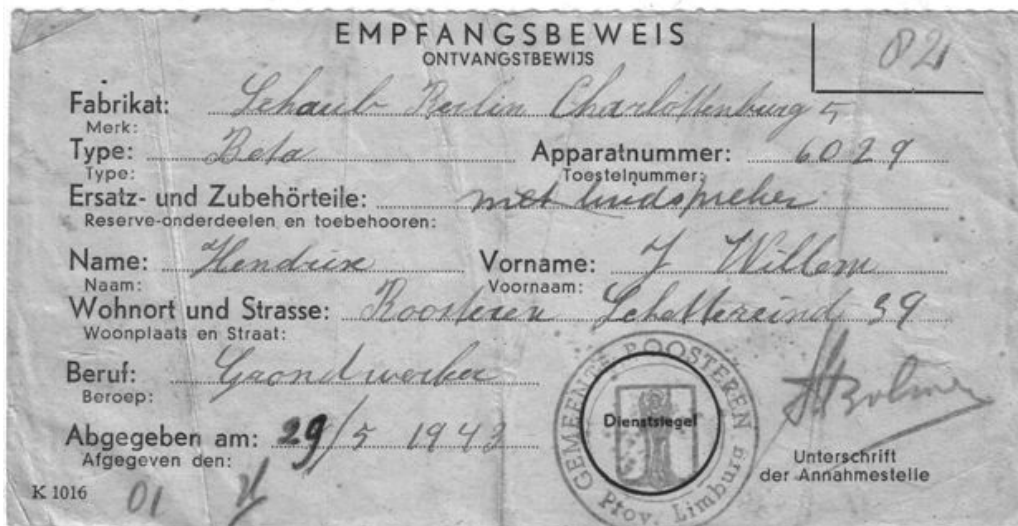 EMPFANGSBEWEIS
ONTVANGSTBEWIJS
82
Fabrikat: Schaub Berlin Charlottenburg 5
Merk:
Type: Beta Apparatnummer: 6029
Type: Toestelnummer:
Ersatz- und Zubehörteile: met
Reserve-onderdeelen en toebehooren:
Name: Hendrix Vorname: J Willem
Naam: Voornaam:
Wohnort und Strasse: Roosteren 39
Woonplaats en Straat:
Beruf: Grondwerker
Beroep:
Abgegeben am: 29/5 1943
Afgegeven den:
GEMEENTE ROOSTEREN
Dienstsiegel
Prov. Limburg
Unterschrift
der Annahmestelle
K 1016
01